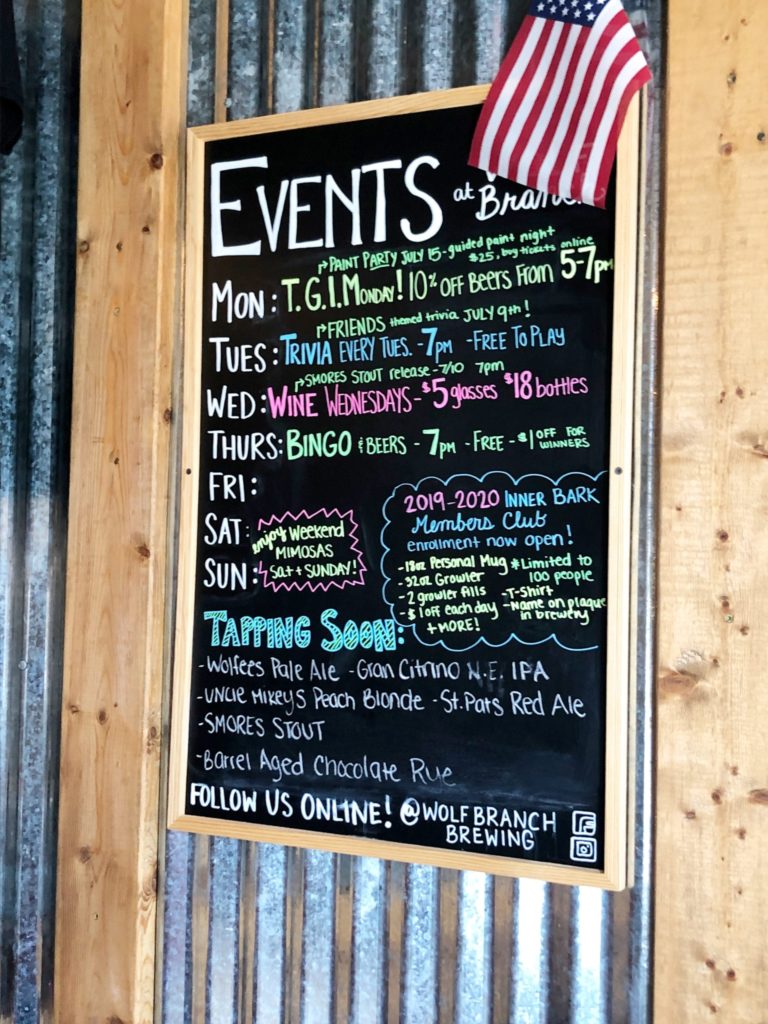 EVENTS at
Branch
↱PAINT PARTY JULY 15-guided paint night
$25, buy tickets online
MON: T.G.I.MONDAY! 10% OFF BEERS FROM 5-7pm
↱FRIENDS themed trivia JULY 9th!
TUES: TRIVIA EVERY TUES. -7PM -FREE TO PLAY
↱SMORES STOUT release-7/10 7pm
WED: WINE WEDNESDAYS-$5 glasses $18 bottles
THURS: BINGO & BEERS - 7PM - FREE - $1 OFF FOR
WINNERS
FRI:
SAT:
SUN:
enjoy Weekend
MIMOSAS
Sat + SUNDAY!
2019-2020 INNER BARK
Members Club
enrollment now open!
-18oz Personal Mug
-32oz Growler
-2 growler fills
-$1 off each day
+MORE!
*Limited to
100 people
-T-Shirt
-Name on plaque
in brewery
TAPPING SOON:
-Wolfees Pale Ale -Gran Citrino N.E. IPA
-UNCLE MIKEYS Peach Blonde -St.Pats Red Ale
-SMORES STOUT
-Barrel Aged Chocolate Rye
FOLLOW US ONLINE! @WOLF BRANCH
BREWING